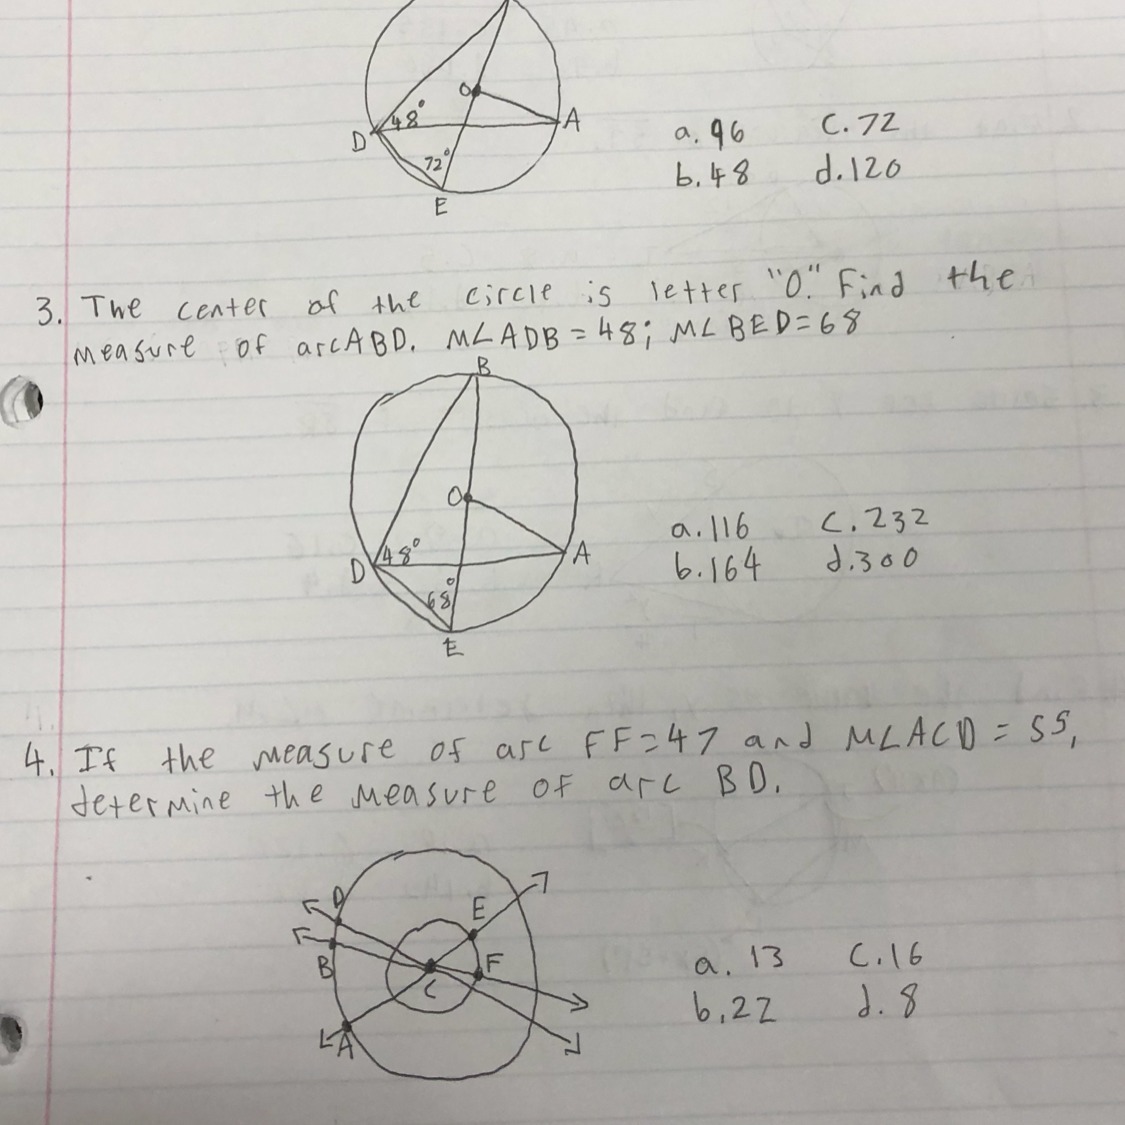 O
48°
D
A
72°
E
a. 96 C. 72
b. 48 d. 120
3. The center of the circle is letter "O." Find the
measure of arcABD. M∠ADB = 48; M∠BED = 68
B
O
48°
D
A
68°
E
a. 116 C. 232
b. 164 d. 300
4. If the measure of arc FF = 47 and M∠ACD = 55,
determine the measure of arc BD.
D
E
B
F
C
A
a. 13 C. 16
b. 22 d. 8